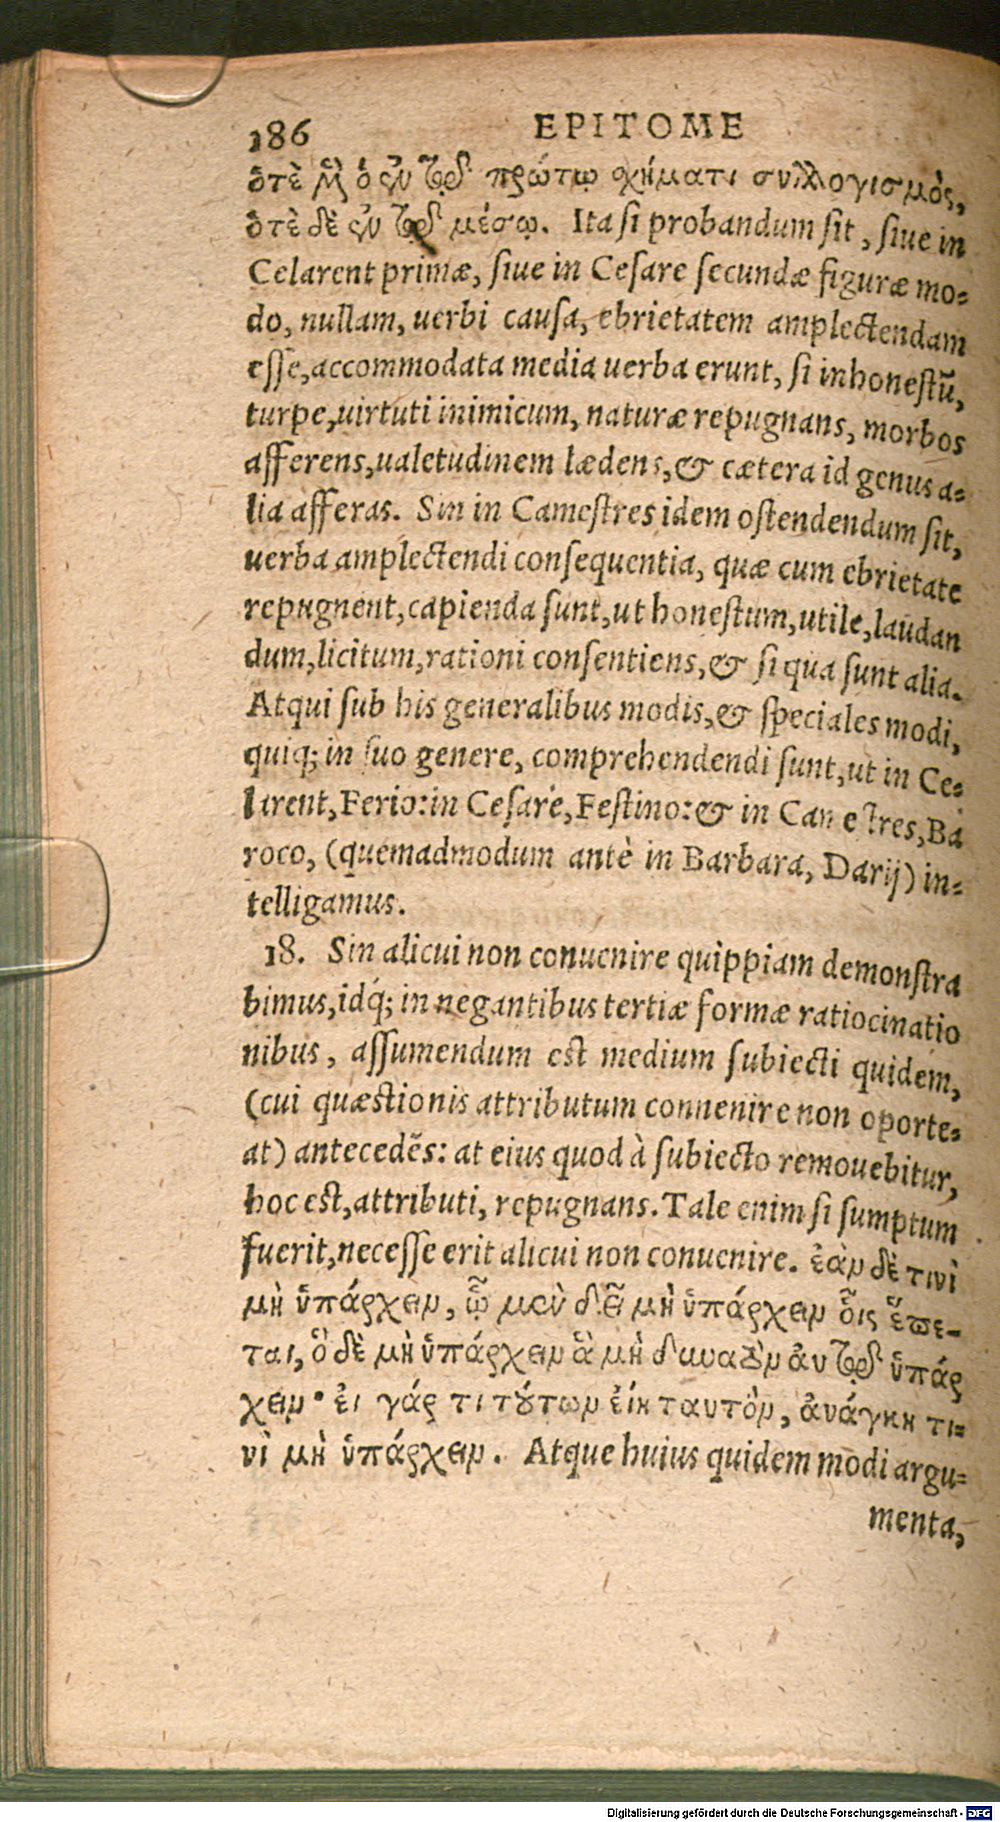 186 EPITOME
ὁτὲ μὲν ὁ ἐν τῷ πρώτῳ σχήματι συλλογισμὸς,
ὁτὲ δὲ ἐν τῷ μέσῳ. Ita si probandum sit, siue in
Celarent primæ, siue in Cesare secundæ figuræ mo-
do, nullam, uerbi causa, ebrietatem amplectendam
esse, accommodata media uerba erunt, si inhonestũ,
turpe, uirtuti inimicum, naturæ repugnans, morbos
afferens, ualetudinem lædens, & cætera id genus a-
lia afferas. Sin in Camestres idem ostendendum sit,
uerba amplectendi consequentia, quæ cum ebrietate
repugnent, capienda sunt, ut honestum, utile, laudan
dum, licitum, rationi consentiens, & si qua sunt alia.
Atqui sub his generalibus modis, & speciales modi,
quiq; in suo genere, comprehendendi sunt, ut in Ce-
larent, Ferio: in Cesare, Festino: & in Camestres, Ba
roco, (quemadmodum antè in Barbara, Darij) in-
telligamus.
18. Sin alicui non conuenire quippiam demonstra
bimus, idq́; in negantibus tertiæ formæ ratiocinatio
nibus, assumendum est medium subiecti quidem,
(cui quæstionis attributum conuenire non oporte-
at) antecedẽs: at eius quod à subiecto remouebitur,
hoc est, attributi, repugnans. Tale enim si sumptum
fuerit, necesse erit alicui non conuenire. ἐὰν δὲ τινὶ
μὴ ὑπάρχειν, ᾧ μὲν δεῖ μὴ ὑπάρχειν οἷς ἕπε-
ται, ὃ δὲ μὴ ὑπάρχειν ἃ μὴ δυναὸν ἀυτῷ ὑπάρ
χειν· ἐι γάρ τι τούτων ἐίη ταυτὸν, ἀνάγκη τι-
νὶ μὴ ὑπάρχειν. Atque huius quidem modi argu-
menta,
Digitalisierung gefördert durch die Deutsche Forschungsgemeinschaft - DFG